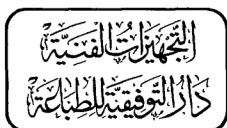 التَّجْهِيزَاتُ الْفَنِّيَّةُ
دَارُ التَّوْفِيقِيَّةِ لِلطِّبَاعَةِ